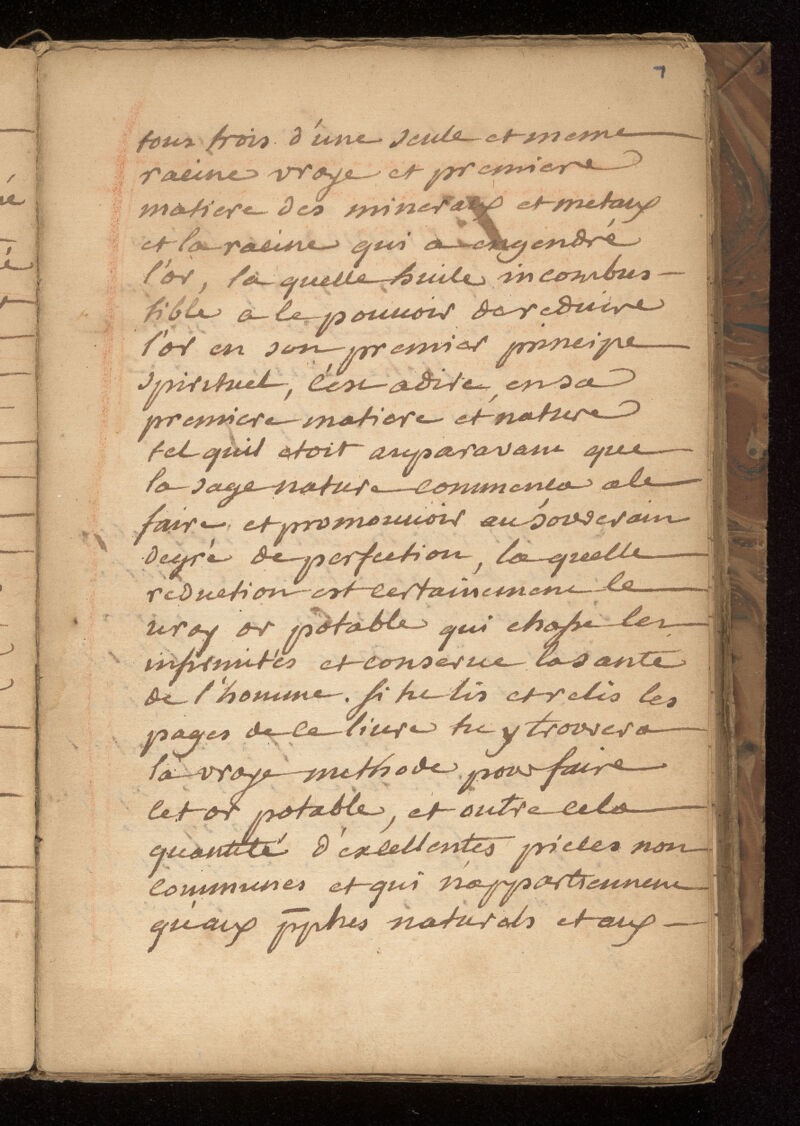 7
tous trois d'une seule et meme
racine vraye et premiere
matiere des mineraux et metaux
et la racine qui a engendré
l'or, la quelle huile incombus-
tible a le pouvoir de reduire
l'or en son premier principe
spirituel, c'est adire, en sa
premiere matiere et nature
tel quil etoit auparavant que
la sage nature commenca a le
faire et promouvoir au souverain
degré de perfection, la quelle
reduction est certainement le
uray or potable qui chasse les
infirmités et conserue la santé
de l'homme. si tu lis et relis les
pages de ce liure tu y trouvera
la vraye methode pour faire
cet or potable, et outre cela
quantité d'excellentes pieces non
communes et qui n'appartiennent
qu'aux pphes naturels et aux